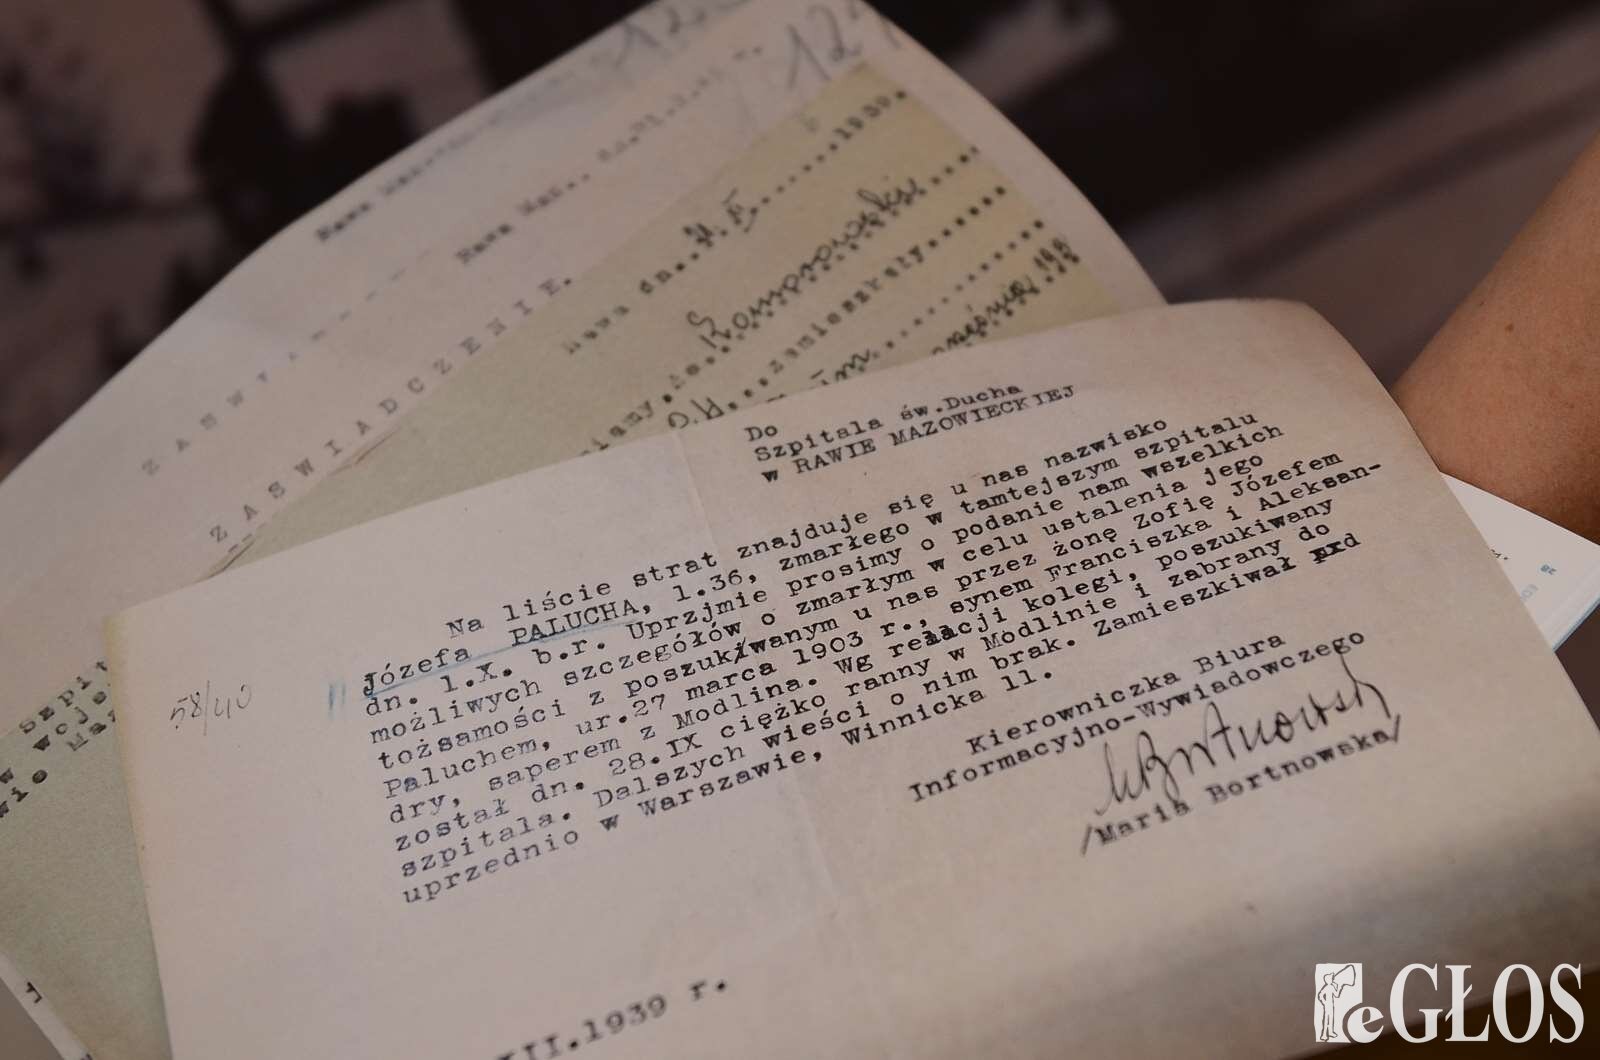 12
12
Rawa Maz.
Rawa Maz..
ZASWIA
ZASWIADCZENIE.
Rawa dn. 1939.
Komorowski
zamieszkały
Szpit
Do
Szpitala św.Ducha
w RAWIE MAZOWIECKIEJ
Na liście strat znajduje się u nas nazwisko
Józefa PALUCHA, l.36, zmarłego w tamtejszym szpitalu
dn. 1.X. b.r. Uprzjmie prosimy o podanie nam wszelkich
możliwych szczegółów o zmarłym w celu ustalenia jego
tożsamości z poszukiwanym u nas przez żonę Zofię Józefem
Paluchem, ur.27 marca 1903 r., synem Franciszka i Aleksan-
dry, saperem z Modlina. Wg relacji kolegi, poszukiwany
został dn. 28.IX ciężko ranny w Modlinie i zabrany do
szpitala. Dalszych wieści o nim brak. Zamieszkiwał
uprzednio w Warszawie, Winnicka 11.
58/40
Kierowniczka Biura
Informacyjno-Wywiadowczego
MBortnowska
/Maria Bortnowska/
III.1939 r.
eGŁOS